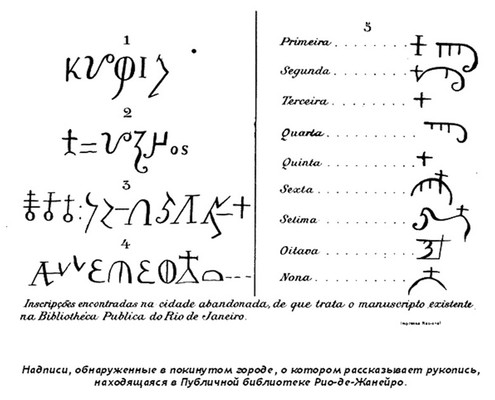 1
2
3
4
5
Primeira . . . . . . . . . .
Segunda . . . . . . . . .
Terceira . . . . . . . . .
Quarta . . . . . . . . . .
Quinta . . . . . . . . . .
Sexta . . . . . . . . . . .
Setima . . . . . . . . . .
Oitava . . . . . . . . . .
Nona . . . . . . . . . . .
Inscripções encontradas na cidade abandonada, de que trata o manuscripto existente
na Bibliothéca Publica do Rio de Janeiro.
Imprensa Nacional
Надписи, обнаруженные в покинутом городе, о котором рассказывает рукопись,
находящаяся в Публичной библиотеке Рио-де-Жанейро.